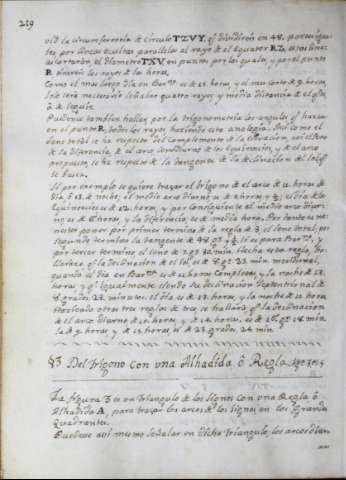 219
vid la circumferencia de circulo TZVY, q̃ dividiren en 48. partes igua-
tes, por lineas ocultas parallelas al rayo de el equator RZ, estas lineas
cortaràn, el diametro TXV, en puntos por los quales, y por el punto
R tiraràn los rayos de las horas.
Como el mas largo dia en Barna es de 15 horas y el mas corto de 9 horas,
solo serà necessario señalar quatro rayos, y media distancia de el otro,
ò de seguir.
Puedense tambien hallar por la trigonometria los angulos q̃ hazen
en el punto R, todos los rayos haziendo esta analogia. Assi como el
seno total se ha respeto del complemento de la elevacion, assi el seno
de la diferencia, de el arco semidiurno de los Equinoccios, y de el arco
propuesto, se ha respeto de la tangente de la declinacion del Sol, q̃
se busca.
Si por exemplo se quiere trazar el trigono de el arco de 11 horas de
dia, ò 13. de noche, el medio arco diurno es de 5 horas y ½; el dia de los
Equinoccios es de 12. horas, y por consiguiente el medio arco diur-
no es de 6 horas, y la diferencia, es de media hora. Por tanto es me-
nester poner por primer termino de la regla de 3, el seno total, por
segundo termino la tangente de 48 gs y ½ si es para Barna, y
por tercer termino el seno de 7 gs 30 min. Hecha esta regla, se
hallarà q̃ la declinacion de el Sol, es de 8 gs 23 min. meridional,
quando el dia en Barna es de 11 horas completas, y la noche de 13.
horas, y q̃ igualmente siendo su declinacion Septentrional de
8 grados 23. minutos. el dia es de 13. horas, y la noche de 11 horas
Haziendo otras tres reglas de tres, se hallarà q̃ la declinacion
de el arco diurno de 10. horas, y de 14. horas. es de 16. gs 18. min.
la de 9 horas, y de 15. horas es de 23 grados 24 min.
§3 Del trigono con vna Alhadida ò Regla.
La figura 3 es un triangulo de los signos con vna Regla ò
Alhadida A, para trazar los arcos de los signos en los Grandes
quadrantes.
Puedense assi mismo señalar en dicho triangulo, los arcos diur-
nos